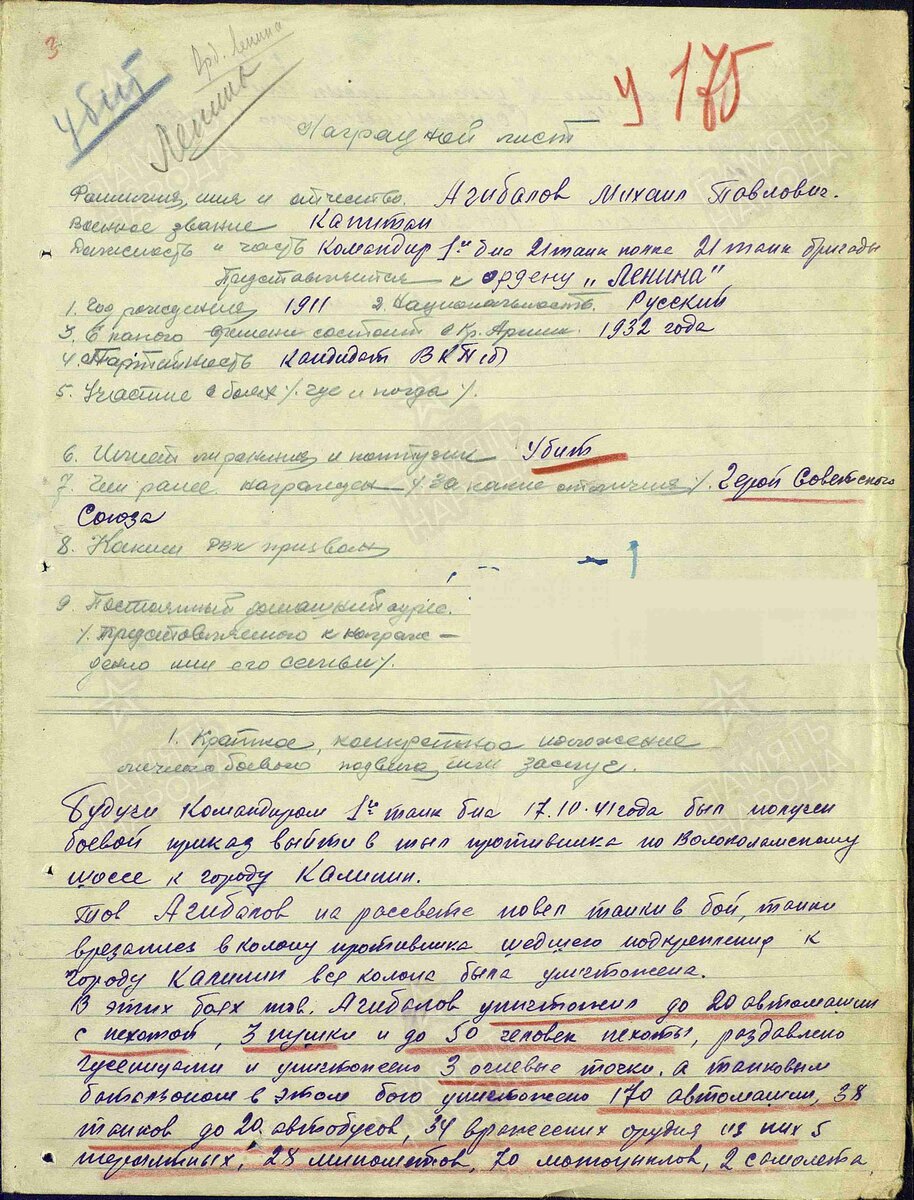 3
Убит
Орд. Ленина
Ленина
У 175
Наградной лист
Фамилия, имя и отчество. Агибалов Михаил Павлович.
Военное звание Капитан
Должность и часть Командир 1го б-на 21 танк полка 21 танк бригады
Представляется к ордену „Ленина"
1. Год рождения 1911 2. Национальность. Русский
3. С какого времени состоит в Кр. Армии. 1932 года
4. Партийность Кандидат ВКП(б)
5. Участие в боях /. где и когда /.
6. Имеет ли ранения и контузии Убит
7. Чем ранее награжден /. За какие отличия /. Герой Советского
Союза
8. Каким РВК призван
9. Постоянный домашний адрес.
/. Представляемого к награж-
дению или его семьи /.
1. Краткое, конкретное изложение
личного боевого подвига или заслуг.
Будучи Командиром 1го танк б-на 17.10.41 года был получен
боевой приказ выйти в тыл противника по Волоколамскому
шоссе к городу Калинин.
Тов Агибалов на рассвете повел танки в бой, танки
врезались в колону противника шедшего подкрепления к
городу Калинин вся колона была уничтожена.
В этих боях тов. Агибалов уничтожил до 20 автомашин
с пехотой, 3 пушки и до 50 человек пехоты, раздавлено
гусеницами и уничтожено 3 огневые точки, а танковым
батальоном в этом бою уничтожено 170 автомашин, 38
танков до 20 автобусов, 34 вражеских орудия из них 5
тяжелых, 28 минометов, 70 мотоциклов, 2 самолета,
ПАМЯТЬ НАРОДА